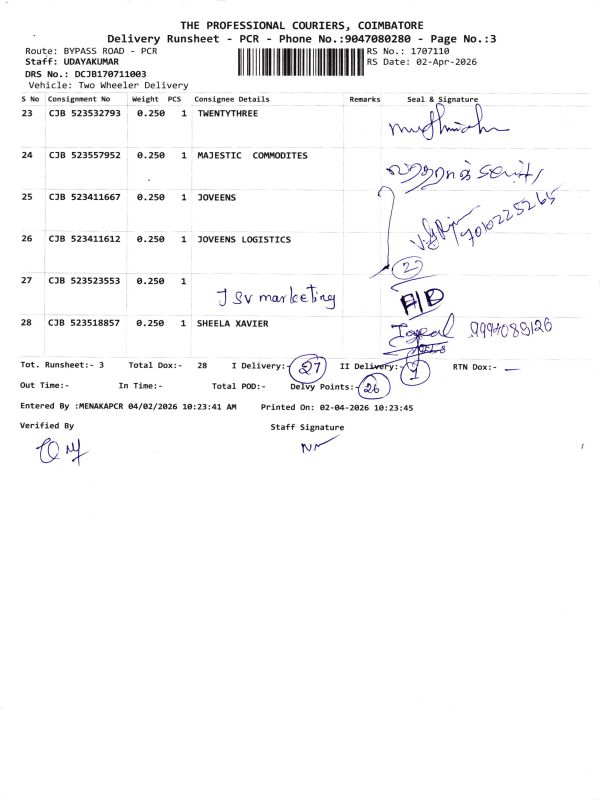 THE PROFESSIONAL COURIERS, COIMBATORE
Delivery Runsheet - PCR - Phone No.:9047080280 - Page No.:3
Route: BYPASS ROAD - PCR RS No.: 1707110
Staff: UDAYAKUMAR RS Date: 02-Apr-2026
DRS No.: DCJB170711003
Vehicle: Two Wheeler Delivery
S No Consignment No Weight PCS Consignee Details Remarks Seal & Signature
23 CJB 523532793 0.250 1 TWENTYTHREE
24 CJB 523557952 0.250 1 MAJESTIC COMMODITES
25 CJB 523411667 0.250 1 JOVEENS
7010225265
26 CJB 523411612 0.250 1 JOVEENS LOGISTICS
2
27 CJB 523523553 0.250 1
J sv marketing A/D
28 CJB 523518857 0.250 1 SHEELA XAVIER
Tot. Runsheet:- 3 Total Dox:- 28 I Delivery:- 27 II Delivery:- 1 RTN Dox:- —
Out Time:- In Time:- Total POD:- Delvy Points:- 26
Entered By :MENAKAPCR 04/02/2026 10:23:41 AM Printed On: 02-04-2026 10:23:45
Verified By Staff Signature